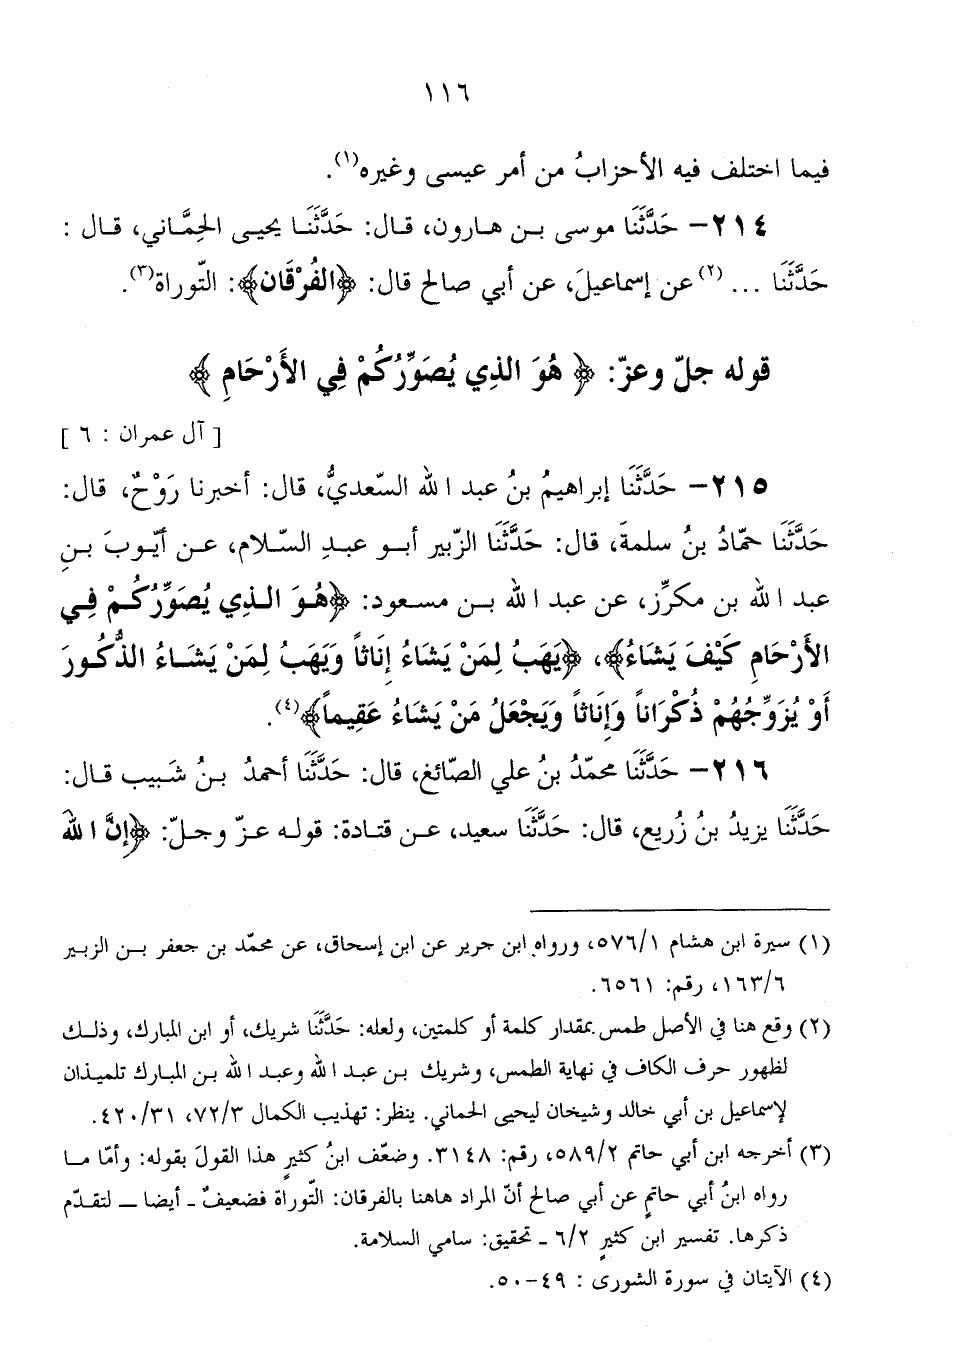 ١١٦
فيما اختلف فيه الأحزابُ من أمر عيسى وغيره(١).
٢١٤- حَدَّثَنَا موسى بن هارون، قال: حَدَّثَنَا يحيى الحِمَّاني، قال :
حَدَّثَنَا ... (٢) عن إسماعيلَ، عن أبي صالح قال: ﴿الفُرْقَان﴾: التّوراة(٣).
قوله جلّ وعزّ: ﴿ هُوَ الذِي يُصَوِّرُكُمْ فِي الأَرْحَامِ ﴾
[ آل عمران : ٦ ]
٢١٥- حَدَّثَنَا إبراهيمُ بنُ عبد الله السّعديُّ، قال: أخبرنا رَوْحٌ، قال:
حَدَّثَنَا حمّادُ بنُ سلمةَ، قال: حَدَّثَنَا الزّبير أبو عبدِ السّلام، عن أيّوبَ بنِ
عبد الله بن مكرِّز، عن عبد الله بن مسعود: ﴿هُوَ الذِي يُصَوِّرُكُمْ فِي
الأَرْحَامِ كَيْفَ يَشَاءُ﴾، ﴿يَهَبُ لِمَنْ يَشَاءُ إِنَاثاً وَيَهَبُ لِمَنْ يَشَاءُ الذُّكُورَ
أَوْ يُزَوِّجُهُمْ ذُكْرَاناً وَإِنَاثاً وَيَجْعَلُ مَنْ يَشَاءُ عَقِيماً﴾(٤).
٢١٦- حَدَّثَنَا محمّدُ بنُ علي الصّائغ، قال: حَدَّثَنَا أحمدُ بنُ شَبيب قال:
حَدَّثَنَا يزيدُ بنُ زُريع، قال: حَدَّثَنَا سعيد، عن قتادة: قوله عزّ وجلّ: ﴿إِنَّ اللهَ
(١) سيرة ابن هشام ٥٧٦/١، ورواه ابن جرير عن ابن إسحاق، عن محمّد بن جعفر بن الزبير
١٦٣/٦، رقم: ٦٥٦١.
(٢) وقع هنا في الأصل طمس بمقدار كلمة أو كلمتين، ولعله: حَدَّثَنا شريك، أو ابن المبارك، وذلك
لظهور حرف الكاف في نهاية الطمس، وشريك بن عبد الله وعبد الله بن المبارك تلميذان
لإسماعيل بن أبي خالد وشيخان ليحيى الحماني. ينظر: تهذيب الكمال ٧٢/٣، ٤٢٠/٣١.
(٣) أخرجه ابن أبي حاتم ٥٨٩/٢، رقم: ٣١٤٨. وضعّف ابنُ كثيرٍ هذا القولَ بقوله: وأمّا ما
رواه ابنُ أبي حاتمٍ عن أبي صالح أنّ المراد هاهنا بالفرقان: التّوراة فضعيفٌ - أيضا - لتقدّم
ذكرها. تفسير ابن كثيرٍ ٦/٢ - تحقيق: سامي السلامة.
(٤) الآيتان في سورة الشورى : ٤٩-٥٠.